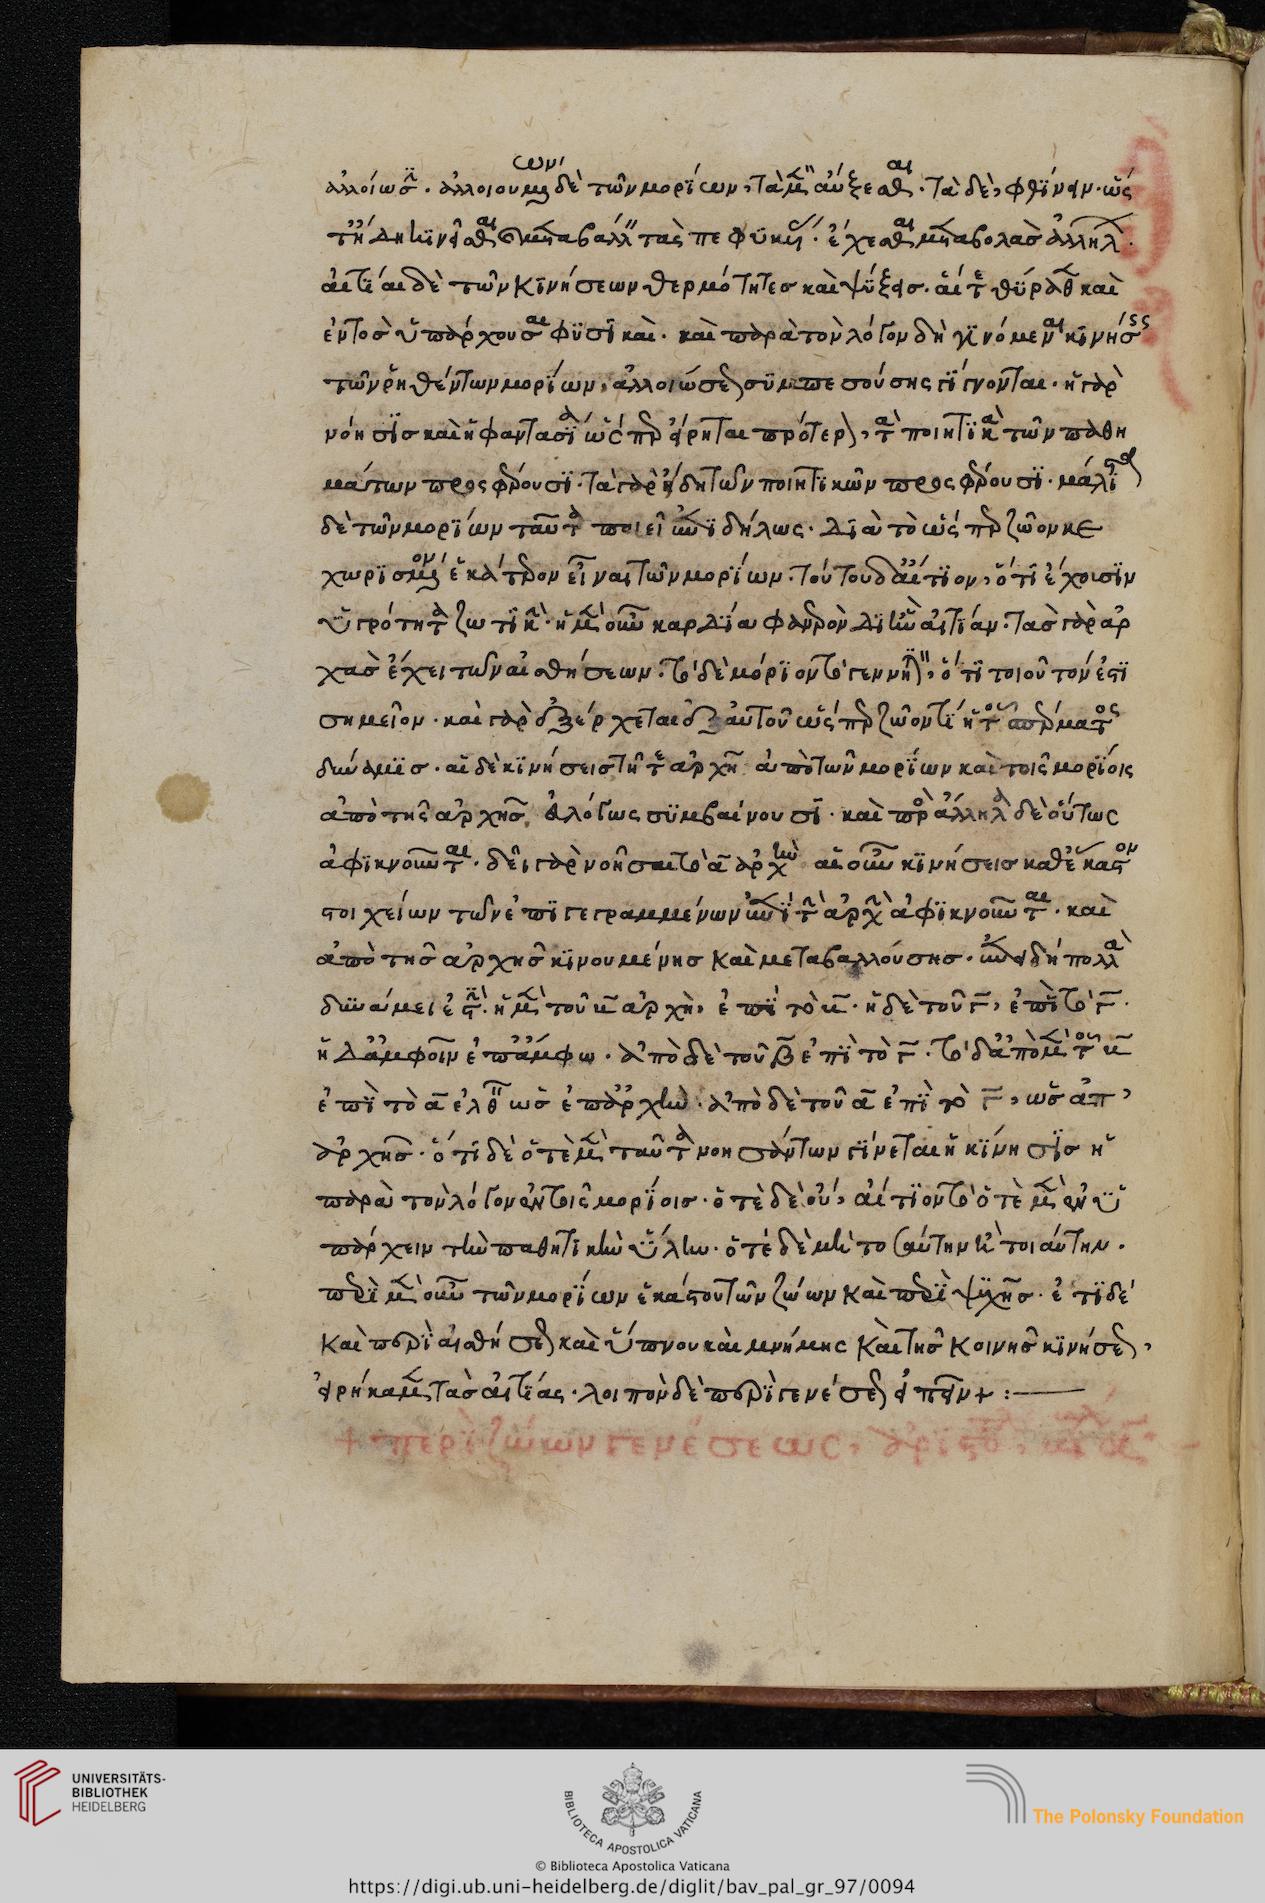 ἀλλοίωσιν. ἀλλοιουμένων δὲ τῶν μορίων, τὰ μὲν αὔξεσθαι. τὰ δὲ, φθίνειν. ὥς
τε ἤδη κινεῖσθαι καὶ μεταβάλλειν τὰς πεφυκυίας ἔχεσθαι μεταβολὰς ἀλλήλων.
αἰτίαι δὲ τῶν κινήσεων θερμότητες καὶ ψύξεις. αἵ τε θύραθεν καὶ
ἐντὸς ὑπάρχουσαι φυσικαὶ. καὶ παρὰ τὸν λόγον δὴ γινόμεναι κινήσεις
τῶν ῥηθέντων μορίων, ἀλλοιώσεως συμπεσούσης γίγνονται. ἡ γὰρ
νόησις καὶ ἡ φαντασία ὥσπερ εἴρηται πρότερον, τὰ ποιητικὰ τῶν παθη
μάτων προσφέρουσι. τὰ γὰρ εἴδη τῶν ποιητικῶν προσφέρουσι. μάλιστα
δὲ τῶν μορίων ταῦτα ποιεῖ ἐπιδήλως. διὰ τὸ ὥσπερ ζῶον κε
χωρισμένον ἑκάτερον εἶναι τῶν μορίων. τούτου δ' αἴτιον, ὅτι ἔχουσιν
ὑγρότητα ζωτικὴν. ἡ μὲν οὖν καρδία φανερὸν δι' ἣν αἰτίαν. τὰς γὰρ ἀρ
χὰς ἔχει τῶν αἰσθήσεων. τὸ δὲ μόριον τὸ γεννητικὸν, ὅτι τοιοῦτόν ἐστι
σημεῖον. καὶ γὰρ ἐξέρχεται ἐξ αὐτοῦ ὥσπερ ζῶόν τι ἡ τοῦ σπέρματος
δύναμις. αἱ δὲ κινήσεις τῇ τε ἀρχῇ ἀπὸ τῶν μορίων καὶ τοῖς μορίοις
ἀπὸ τῆς ἀρχῆς εὐλόγως συμβαίνουσι. καὶ πρὸς ἄλληλα δὲ οὕτως
ἀφικνοῦνται. δεῖ γὰρ νοῆσαι τὸ α ἀρχήν αἱ οὖν κινήσεις καθ' ἕκαστον
στοιχείων τῶν ἐπιγεγραμμένων ἐπὶ τὴν ἀρχὴν ἀφικνοῦνται. καὶ
ἀπὸ τῆς ἀρχῆς κινουμένης καὶ μεταβαλλούσης. ἐπειδὴ πολλὰ
δυνάμει ἐστὶν. ἡ μὲν τοῦ β ἀρχὴ, ἐπὶ τὸ β. ἡ δὲ τοῦ γ, ἐπὶ τὸ γ.
ἡ δ' ἀμφοῖν ἐπ' ἄμφω. ἀπὸ δὲ τοῦ β ἐπὶ τὸ γ. τὸ δ' ἀπὸ μὲν τοῦ β
ἐπὶ τὸ α ἐλθεῖν ὡς ἐπ' ἀρχὴν. ἀπὸ δὲ τοῦ α ἐπὶ τὸ γ, ὡς ἀπ'
ἀρχῆς. ὅτι δὲ ὁτὲ μὲν ταῦτα νοησάντων γίνεται ἡ κίνησις ἡ
παρὰ τὸν λόγον ἐν τοῖς μορίοις. ὁτὲ δὲ οὔ, αἴτιον τὸ ὁτὲ μὲν ἐνυ
πάρχειν τὴν παθητικὴν ὕλην. ὁτὲ δὲ μὴ τοσαύτην ἢ τοιαύτην.
περὶ μὲν οὖν τῶν μορίων ἑκάστου τῶν ζώων καὶ περὶ ψυχῆς. ἔτι δὲ
καὶ περὶ αἰσθήσεως καὶ ὕπνου καὶ μνήμης καὶ τῆς κοινῆς κινήσεως,
εἰρήκαμεν τὰς αἰτίας. λοιπὸν δὲ περὶ γενέσεως εἰπεῖν + :—
+ περὶ ζώων γενέσεως, ἀριστοτέλους
UNIVERSITÄTS-
BIBLIOTHEK
HEIDELBERG
BIBLIOTECA APOSTOLICA VATICANA
The Polonsky Foundation
© Biblioteca Apostolica Vaticana
https://digi.ub.uni-heidelberg.de/diglit/bav_pal_gr_97/0094